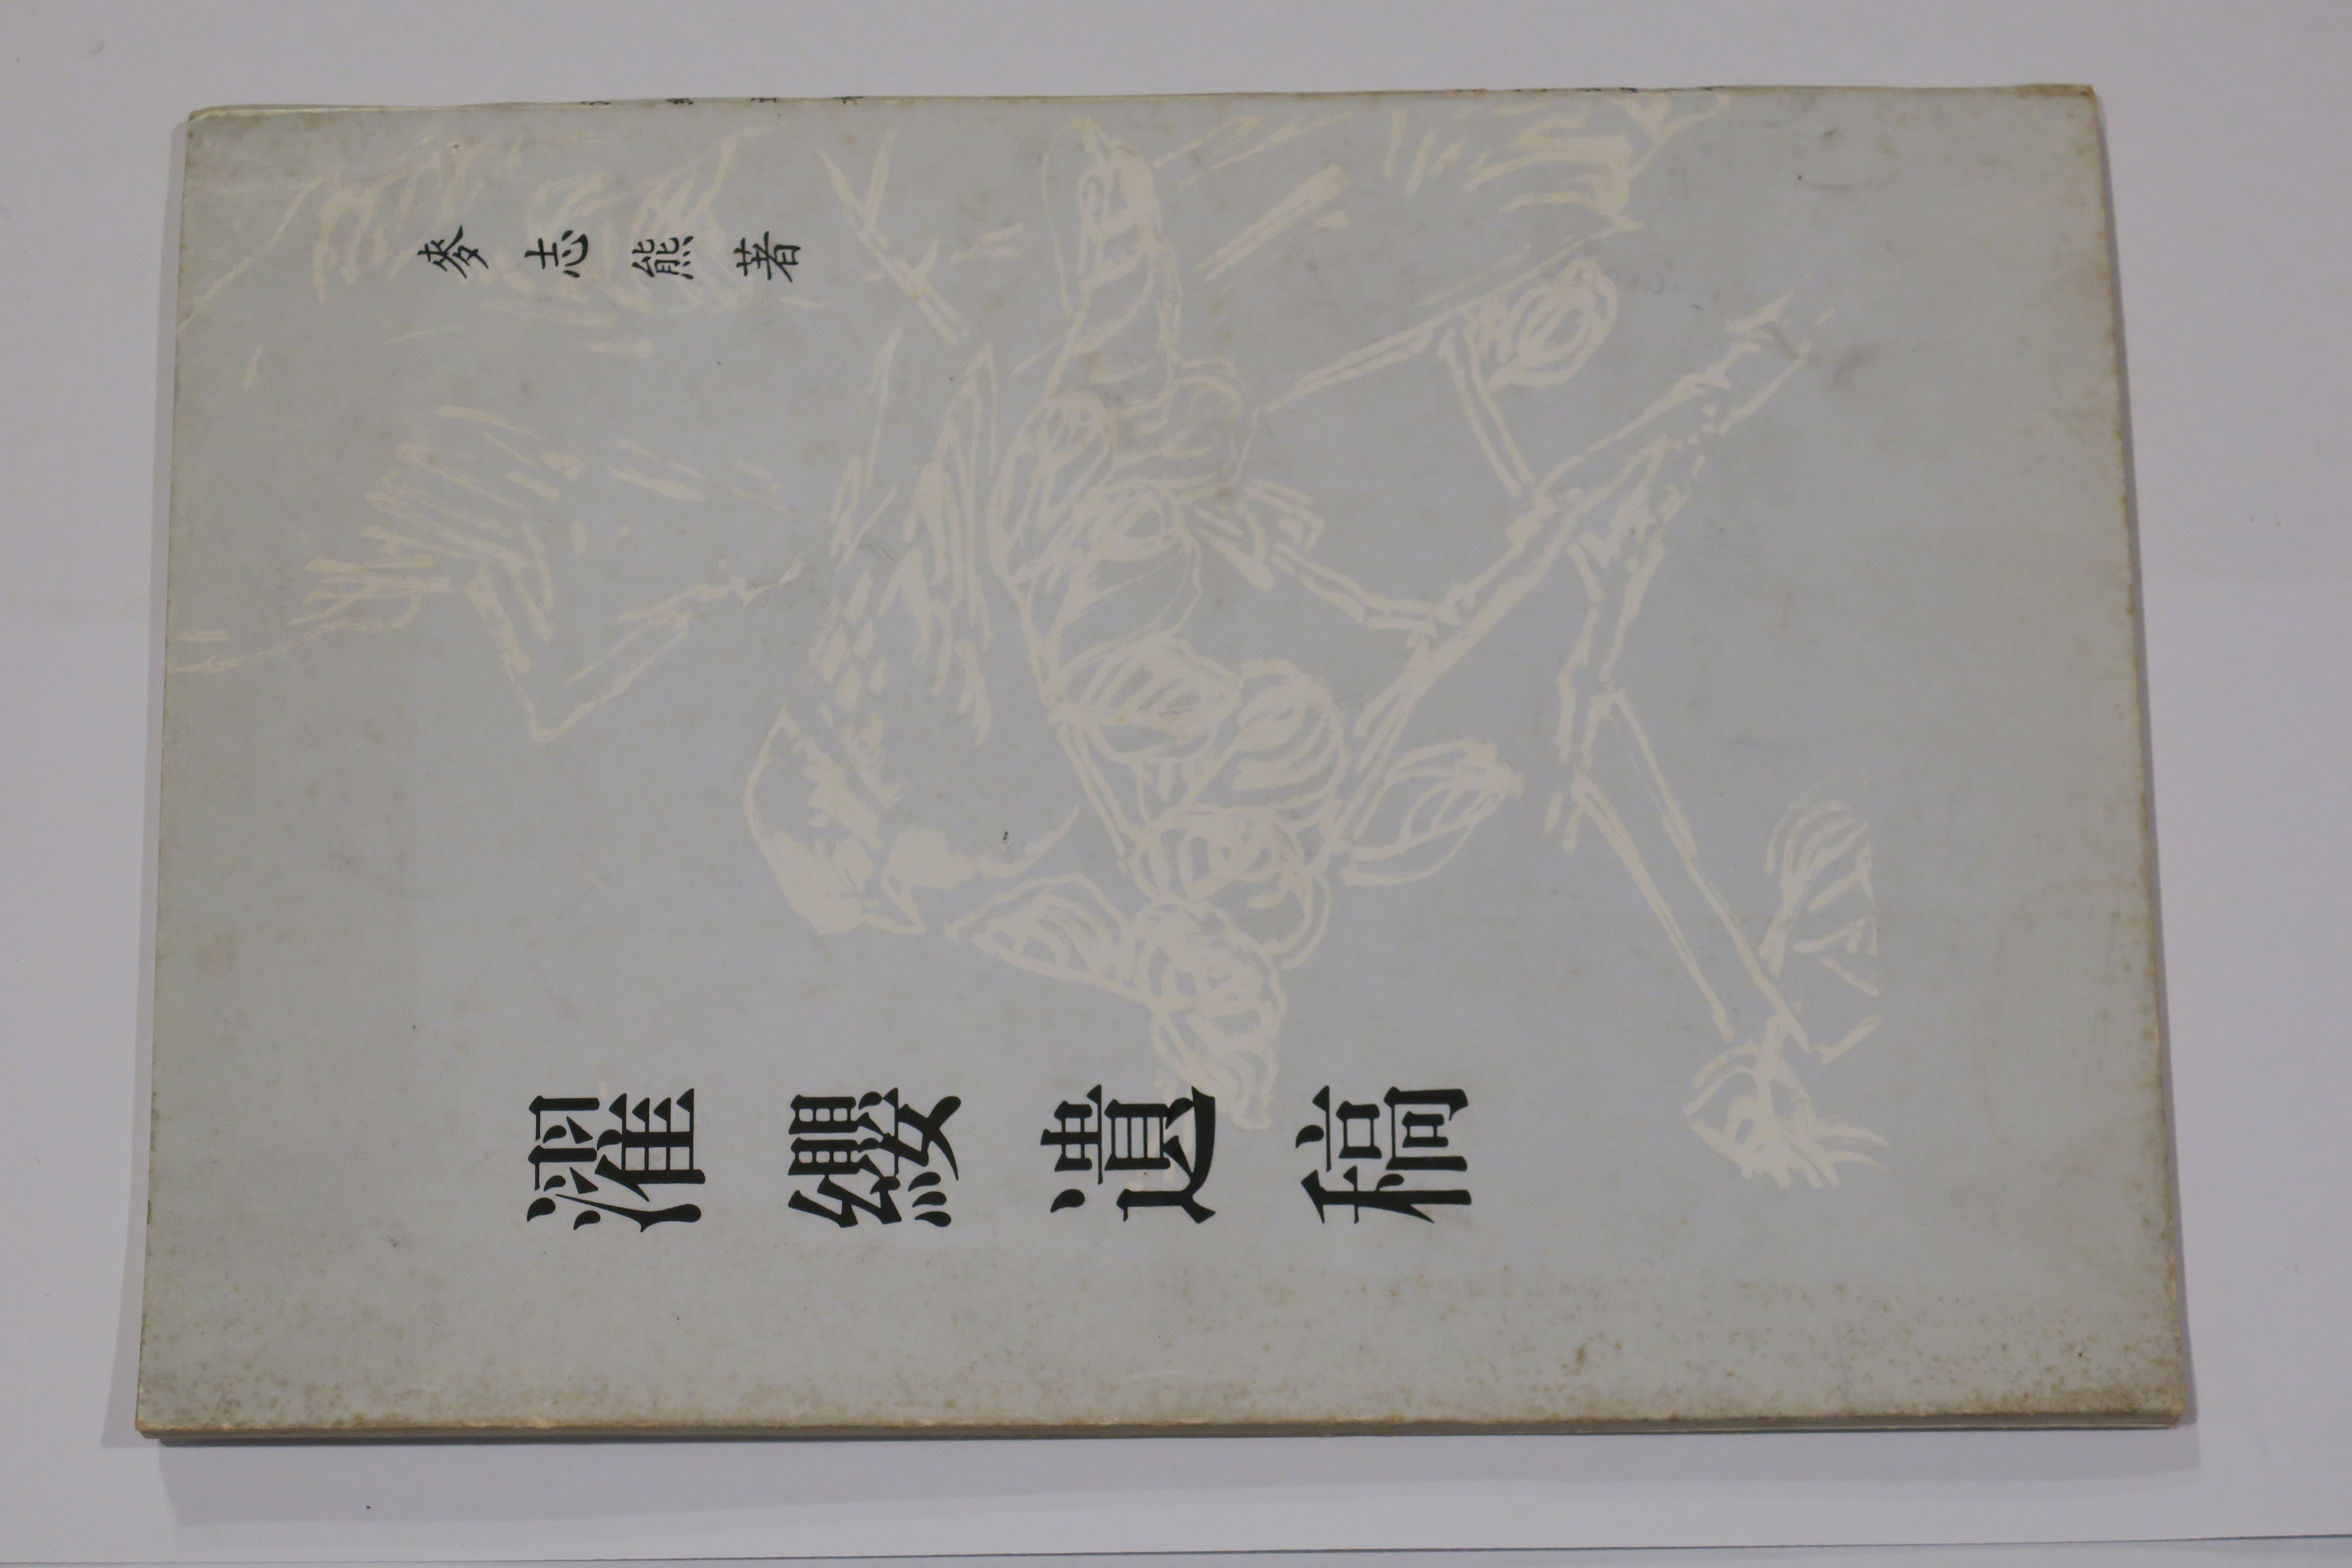 濯纓遺稿
麥志熊著